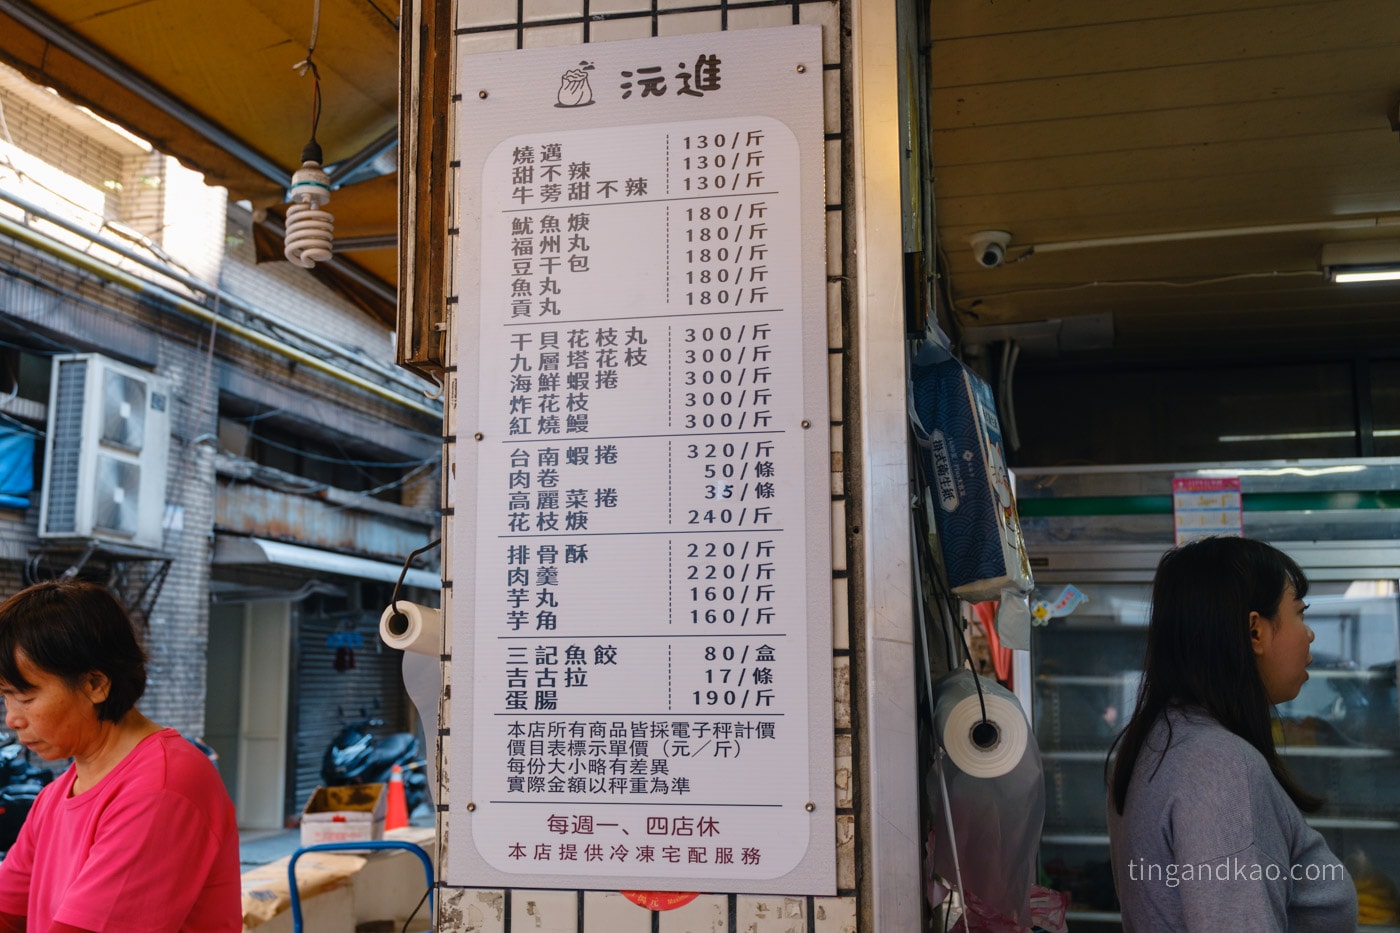 沅進
燒邁 130/斤
甜不辣 130/斤
牛蒡甜不辣 130/斤
魷魚焿 180/斤
福州丸 180/斤
豆干包 180/斤
魚丸 180/斤
貢丸 180/斤
干貝花枝丸 300/斤
九層塔花枝 300/斤
海鮮蝦捲 300/斤
炸花枝 300/斤
紅燒鰻 300/斤
台南蝦捲 320/斤
肉卷 50/條
高麗菜捲 35/條
花枝焿 240/斤
排骨酥 220/斤
肉羹 220/斤
芋丸 160/斤
芋角 160/斤
三記魚餃 80/盒
吉古拉 17/條
蛋腸 190/斤
本店所有商品皆採電子秤計價
價目表標示單價（元／斤）
每份大小略有差異
實際金額以秤重為準
每週一、四店休
本店提供冷凍宅配服務
tingandkao.com